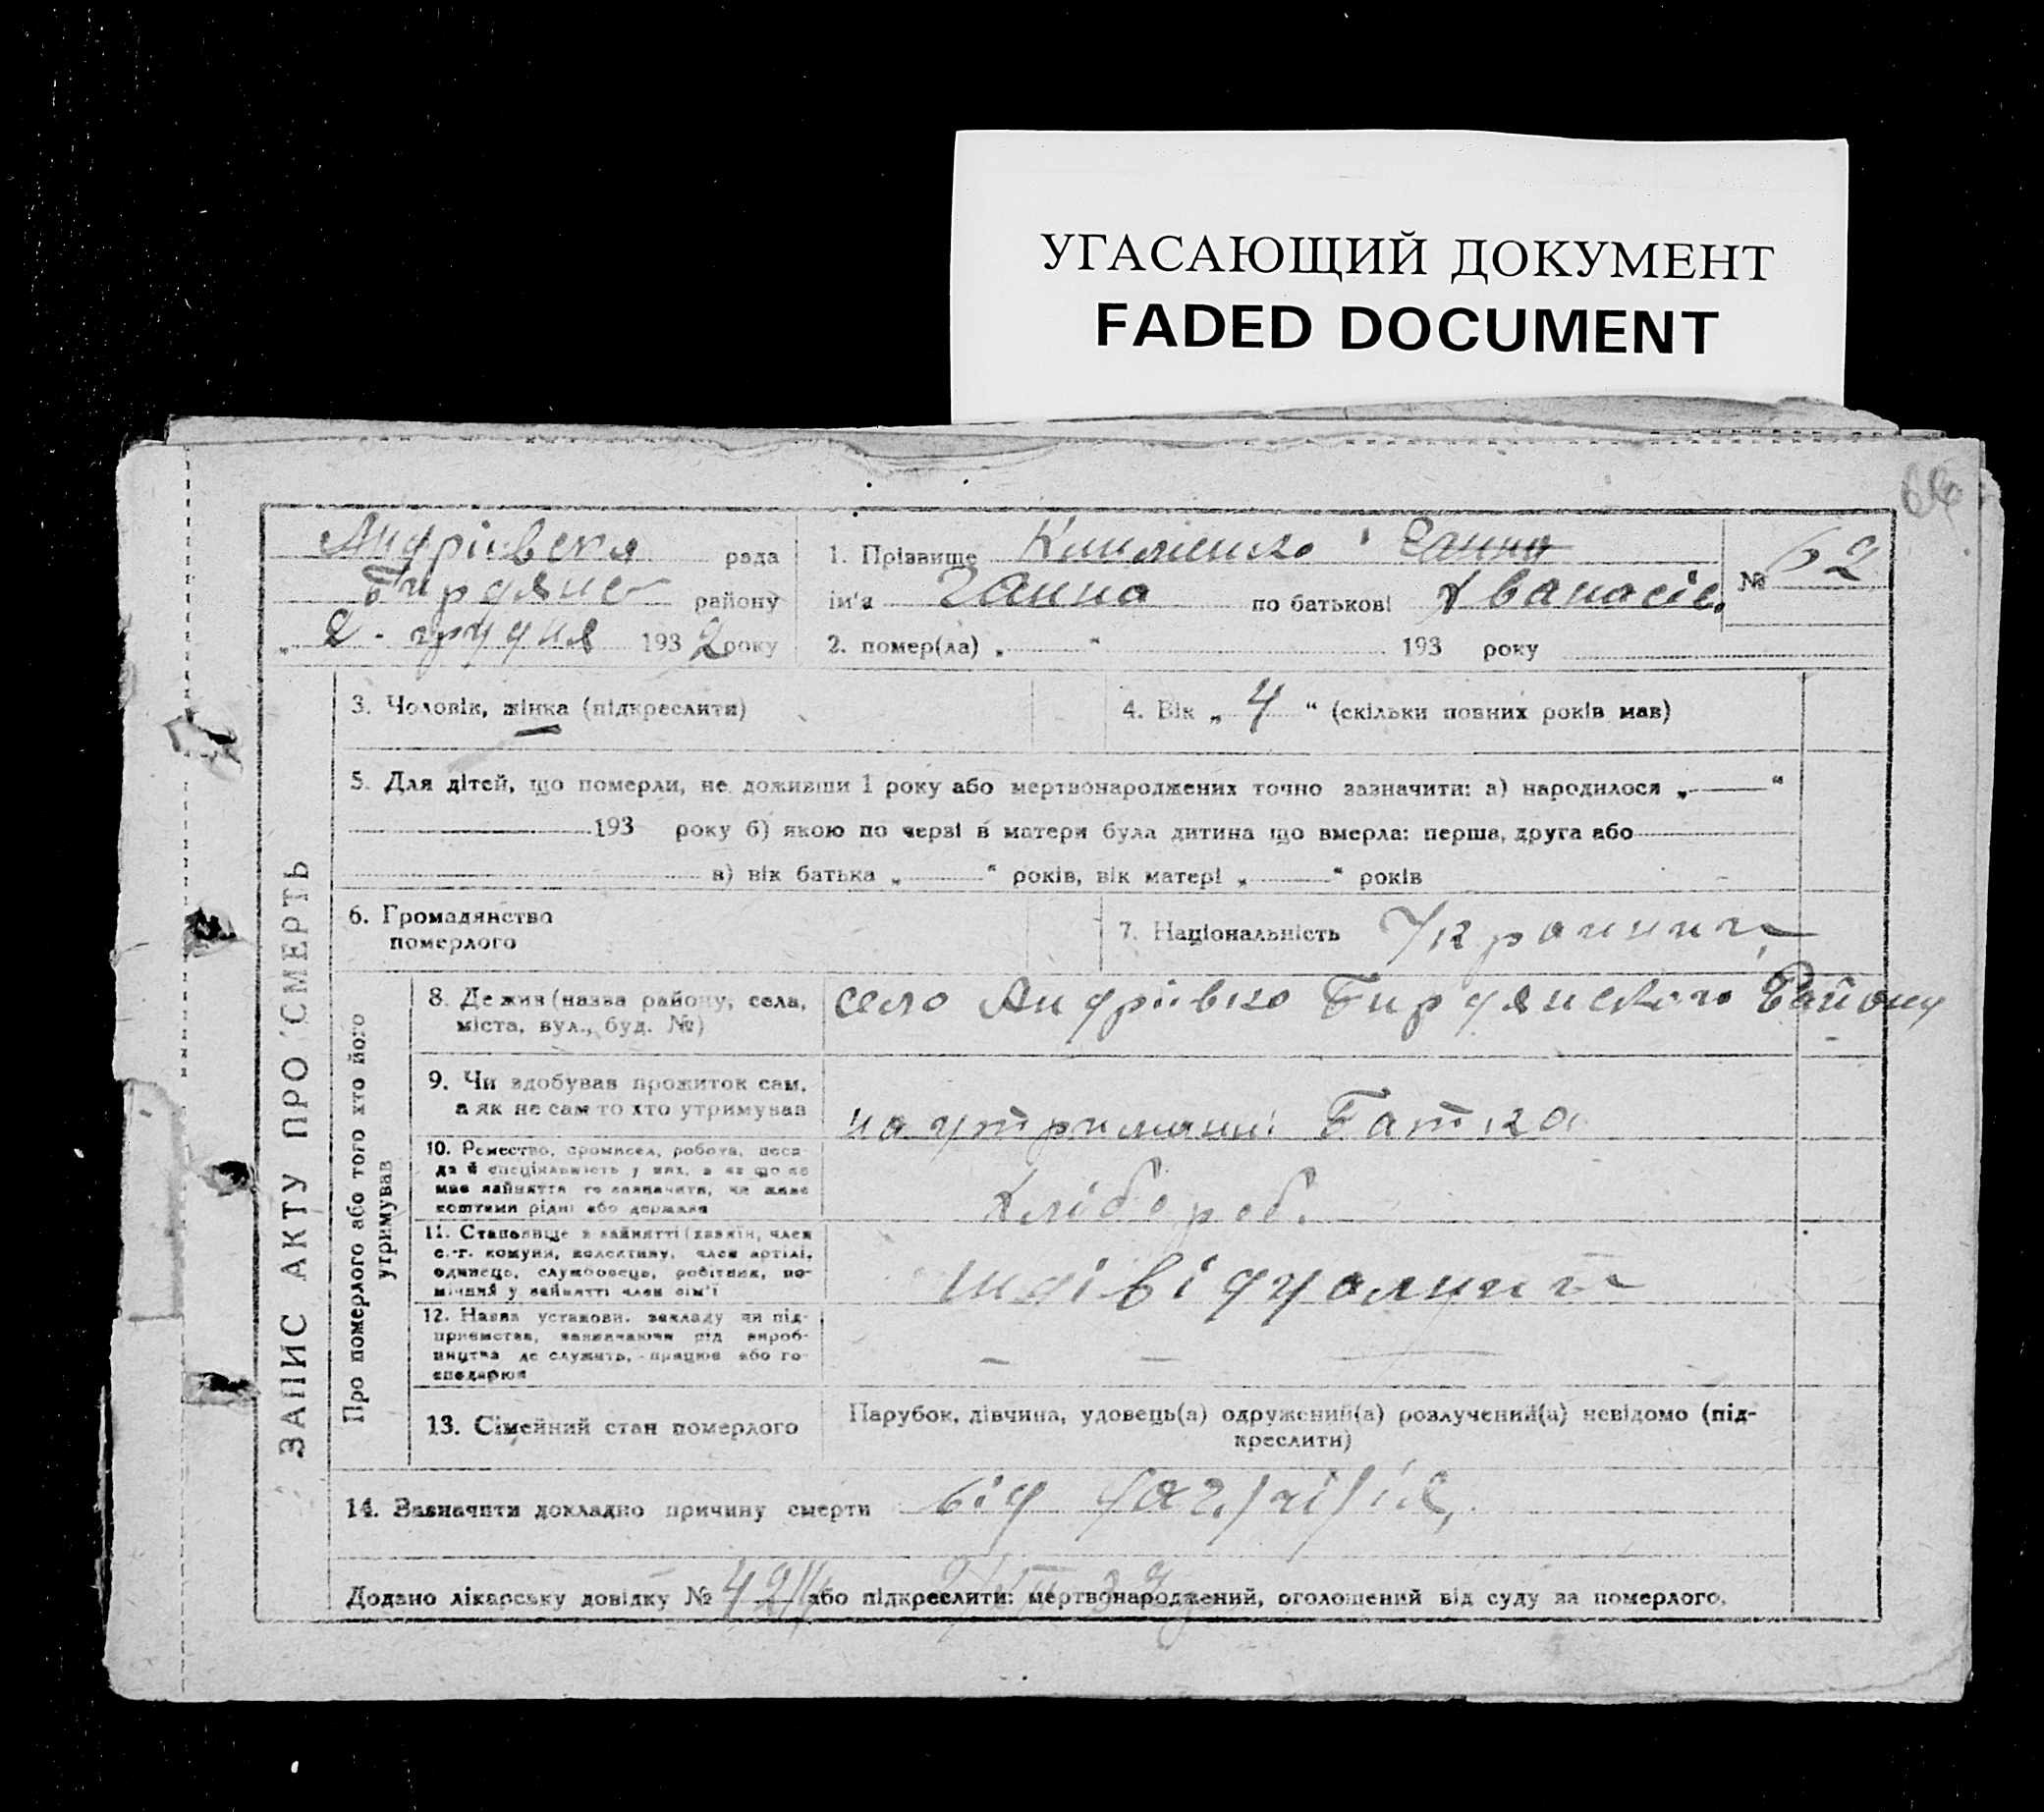 УГАСАЮЩИЙ ДОКУМЕНТ
FADED DOCUMENT
62
ЗАПИС АКТУ ПРО СМЕРТЬ
Андрівська рада
району
„ 2 . грудня 1932 року
1. Прізвище Ганна
ім'я Ганна по батькові
№ 62
2. помер(ла) „ “ 193 року
3. Чоловік, жінка (підкреслити)
4. Вік „ 4 “ (скільки повних років мав)
5. Для дітей, що померли, не доживши 1 року або мертвонароджених точно зазначити: а) народилося „ “
193 року б) якою по черзі в матери була дитина що вмерла: перша, друга або
в) вік батька „ “ років, вік матері „ “ років
6. Громадянство
померлого
7. Національність
Про померлого або того хто його
утримував
8. Де жив (назва району, села,
міста, вул., буд. №)
село Андрівка Бирдянского Району
9. Чи здобував прожиток сам,
а як не сам то хто утримував
на утриманні Батька
10. Ремество, промисел, робота, поса-
да й спеціяльність у них, а як що не
має зайняття то зазначити, чи живе
коштами рідні або держави
Хлібороб.
11. Становище в зайнятті (хазяїн, член
с.-г. комуни, колективу, член артілі,
одинець, службовець, робітник, по-
мічний у зайнятті член сім'ї
12. Назва установи, закладу чи під-
приємства, зазначаючи рід вироб-
ництва де служить, працює або го-
сподарює
— — —
13. Сімейний стан померлого
Парубок, дівчина, удовець(а) одружений(а) розлучений(а) невідомо (під-
креслити)
14. Зазначити докладно причину смерти від
Додано лікарську довідку № або підкреслити: мертвонароджений, оголошений від суду за померлого.